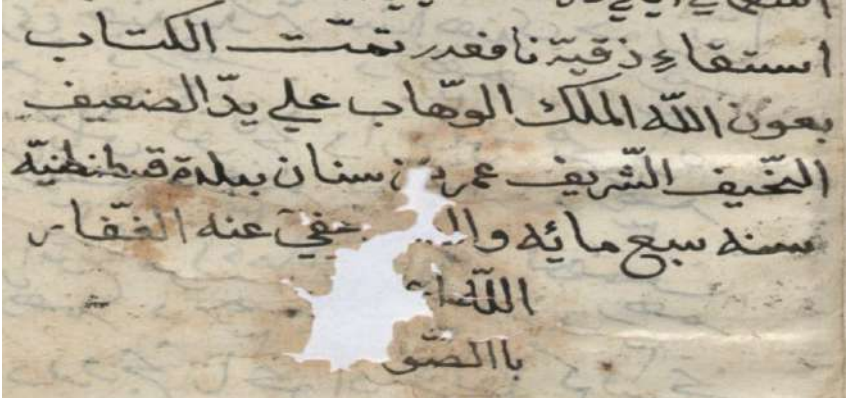 استقاءِ ذقيّة نافعدر تمّت الكتاب
بعون اللّه الملك الوهّاب علي يدّ الضعيف
النحّيف الشّريف عمر بن سنان ببلدة قسطنطنيّه
سنه سبع مائه عفيَ عنه الغفّار
اللّه
باالصّو